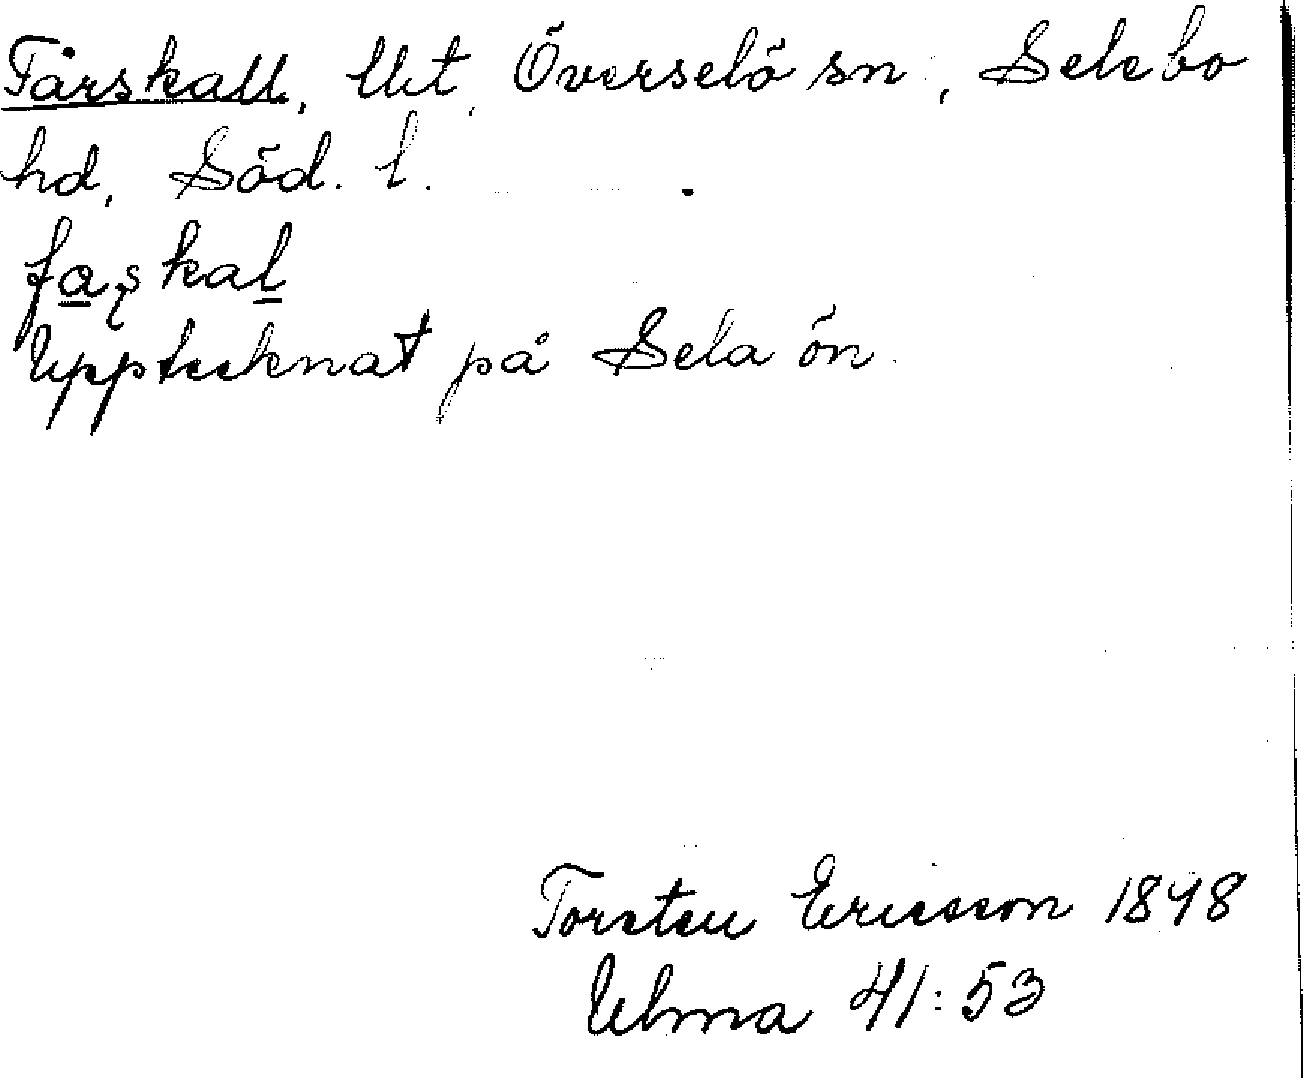 Fårskall, Utt, Överselö sn, Selebo
hd, Söd. l.
Upptecknat på Sela ön.
Torsten Ericsson 1848
Ulma 41:53